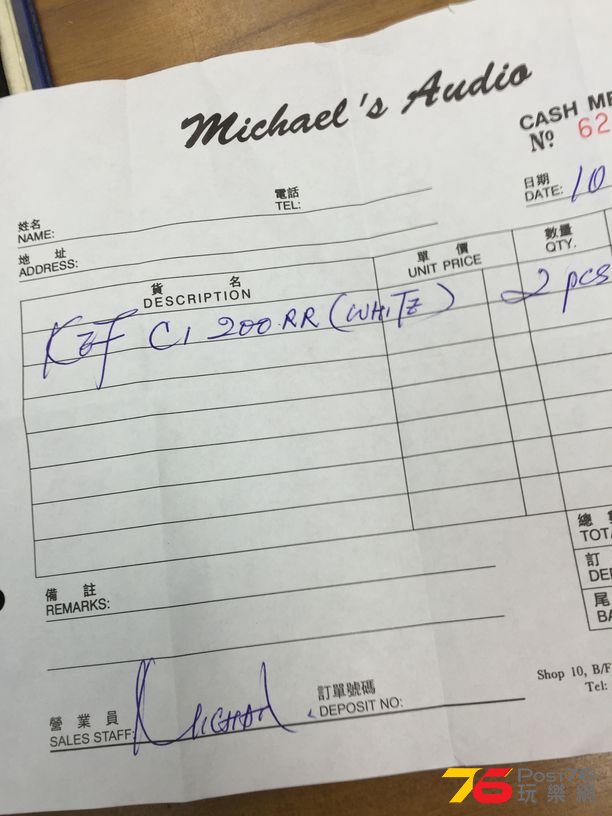 Michael's Audio
CASH ME
Nº 62
電話
TEL:
日期
DATE: 10
姓名
NAME:
地址
ADDRESS:
貨名
DESCRIPTION
單價
UNIT PRICE
數量
QTY.
KEF Ci 200.RR (WHITE) 2 pcs
總
TOT
訂
DE
尾
BA
備註
REMARKS:
Shop 10, B/F
Tel:
營業員
SALES STAFF:
訂單號碼
DEPOSIT NO:
76 Post76
玩樂網